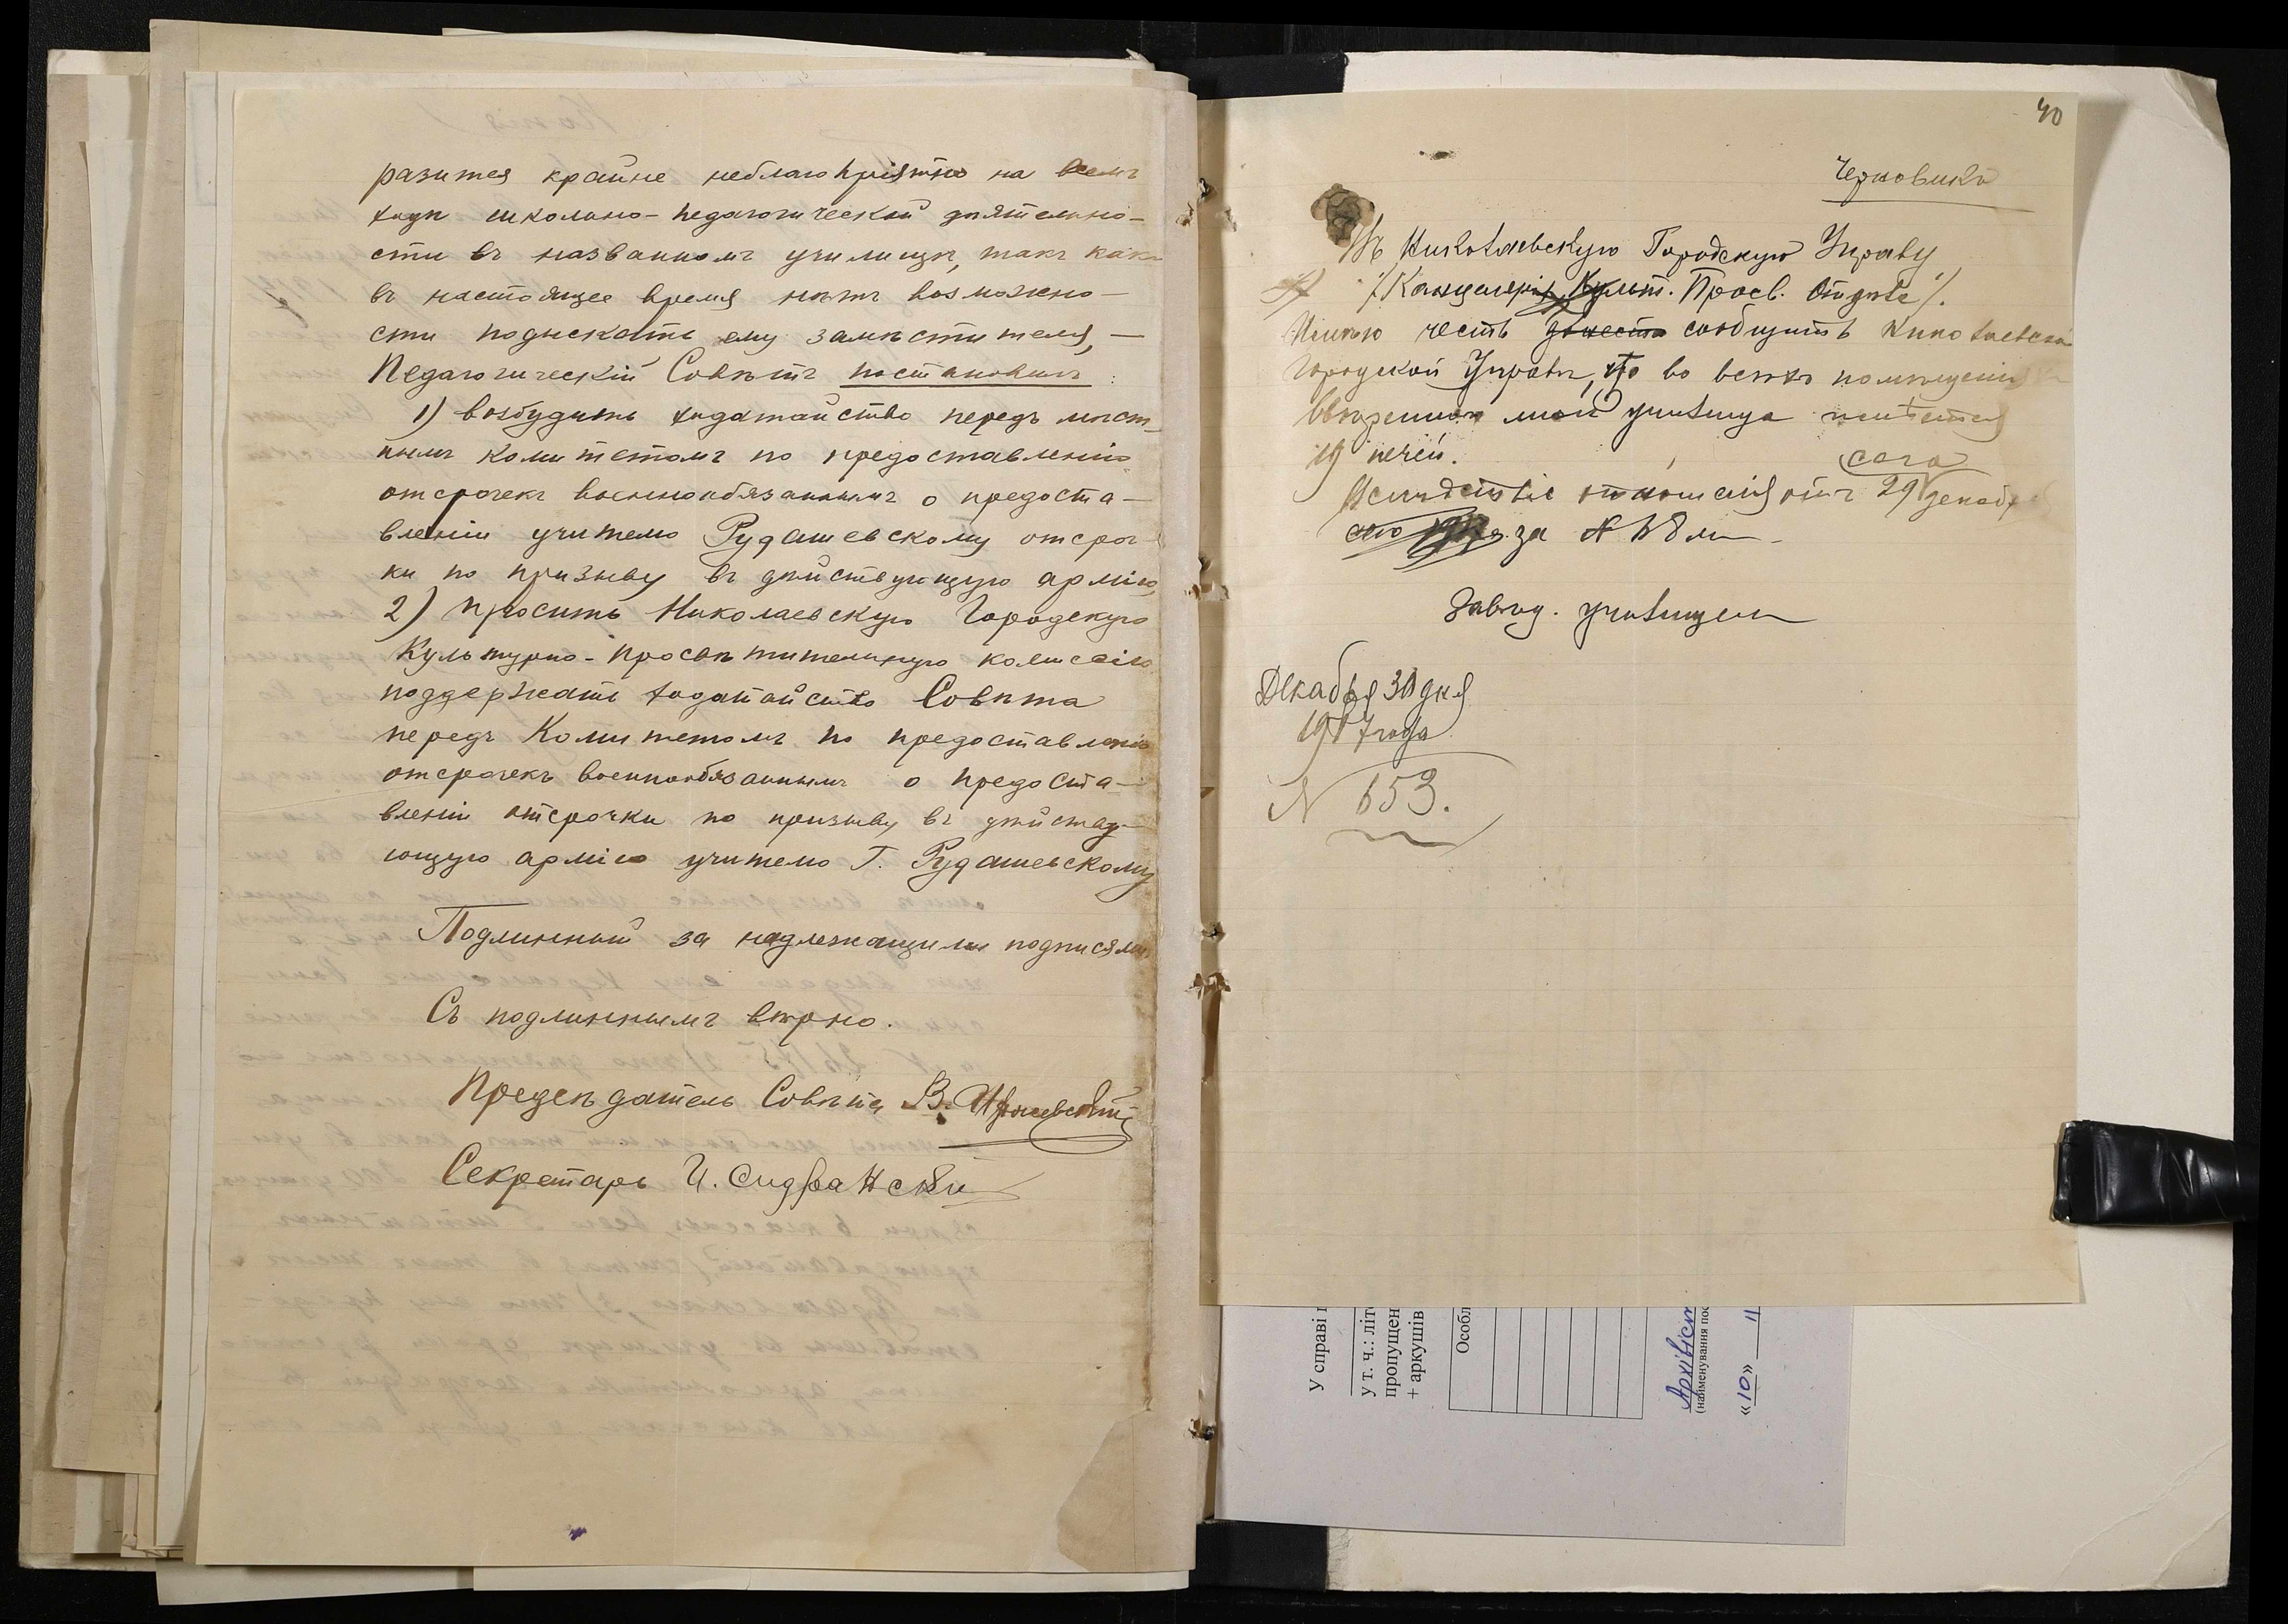 разится крайне неблагопріятно на всемъ
ходѣ школьно-педагогической дѣятельно-
сти въ названномъ училищѣ, такъ какъ
въ настоящее время нѣтъ возможно-
сти подыскать ему замѣстителя, —
Педагогическій Совѣтъ постановилъ:
1) возбудить ходатайство передъ мѣст-
нымъ комитетомъ по предоставленію
отсрочекъ военнообязаннымъ о предоста-
вленіи учителю Рудашевскому отсроч-
ки по призыву въ дѣйствующую армію,
2) просить Николаевскую Городскую
Культурно-просвѣтительную комиссію
поддержать ходатайство Совѣта
передъ Комитетомъ по предоставленію
отсрочекъ военнообязаннымъ о предоста-
вленіи отсрочки по призыву въ дѣйству-
ющую армію учителю Г. Рудашевскому
Подлинный за надлежащими подписями
Съ подлиннымъ вѣрно.
Предсѣдатель Совѣта В.
Секретарь И.
40
Черновикъ
Въ Николаевскую Городскую Управу
/Канцелярія Культ. Просв. Отдѣла/.
Имѣю честь донести сообщить Николаевской
Городской Управѣ, что во всѣхъ помѣщеніяхъ
ввѣреннаго мнѣ училища имѣется
19 печей.
сего
отношенія отъ 29 декабря
сего за №
Завѣд. училищемъ
Декабря 30 дня
1917 года
N 653.
У справі
у т. ч.: літ
пропущен
+ аркушів
Особл
Архівіст
(найменування пос
«10» 11